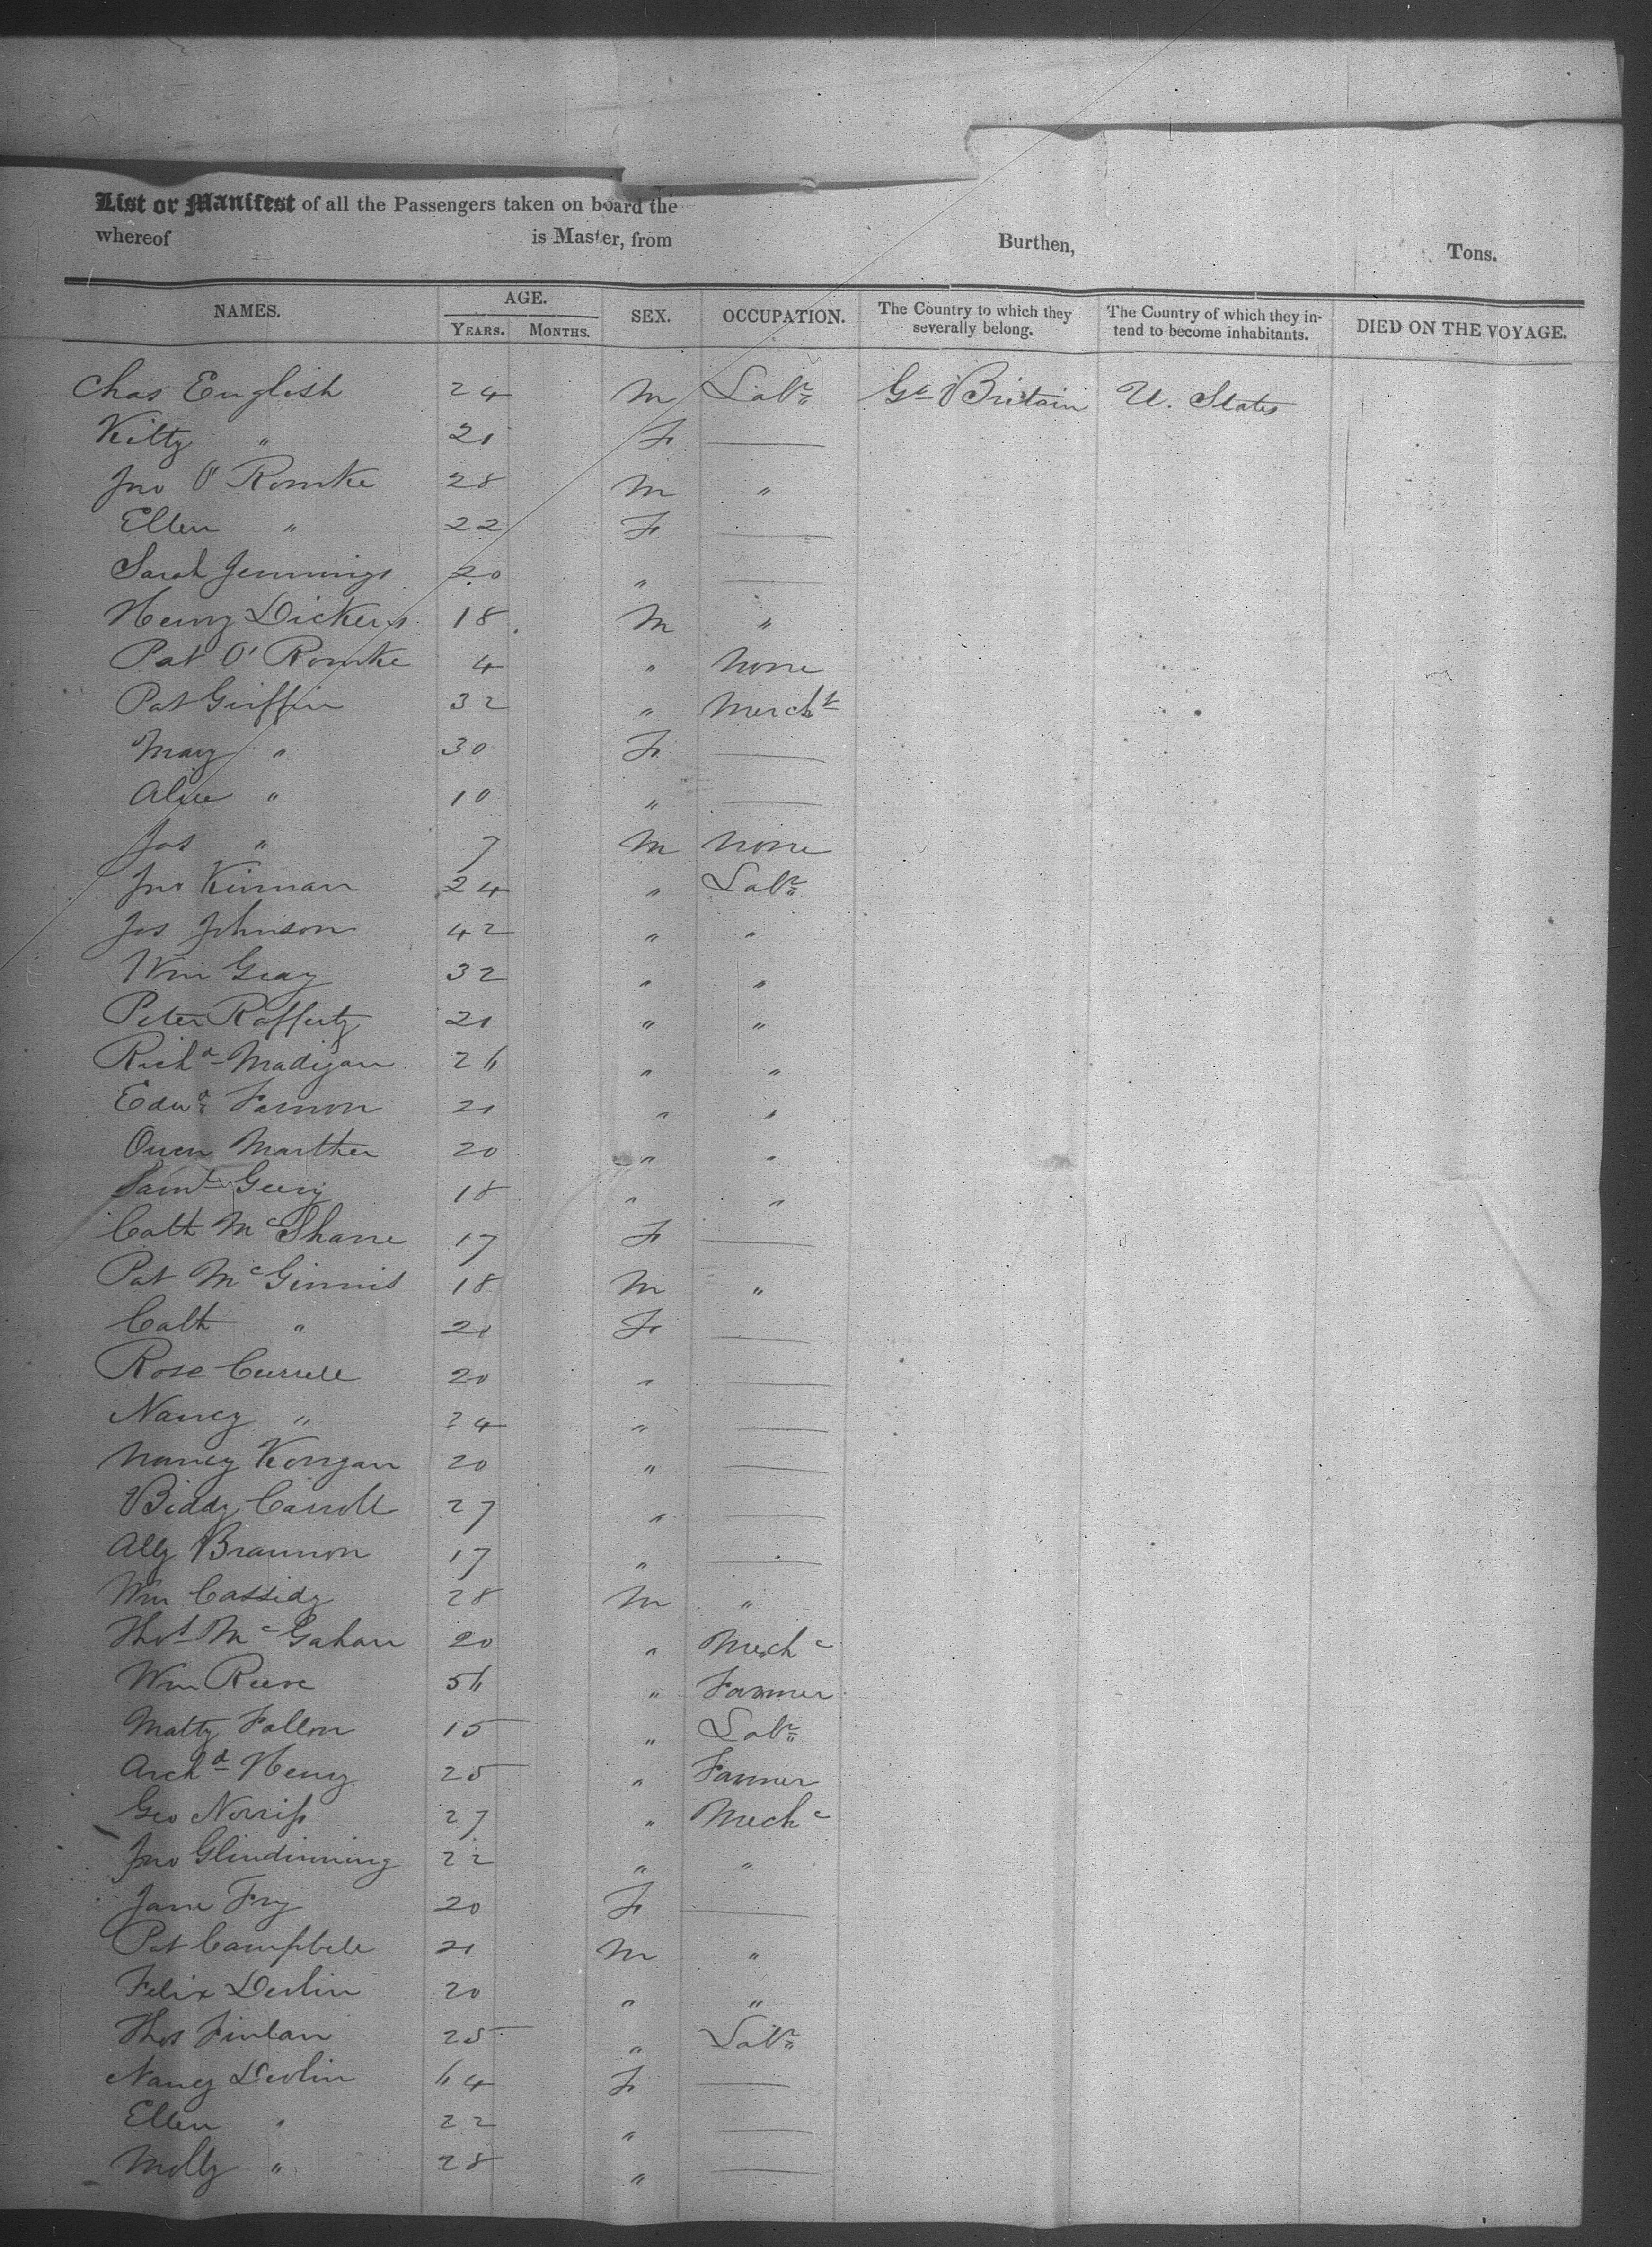 List or Manifest of all the Passengers taken on board the
whereof is Master, from Burthen, Tons.
NAMES. AGE. YEARS. MONTHS. SEX. OCCUPATION. The Country to which they severally belong. The Country of which they intend to become inhabitants. DIED ON THE VOYAGE.
Chas English 24 M Labr Gt Britain U. States
Kitty " 21 F —
Jno O'Rourke 28 M "
Ellen " 22 F —
Sarah Jennings 20 " —
Henry Dickens 18 M "
Pat O'Rourke 4 " None
Pat Griffin 32 " Mercht
Mary " 30 F —
Alice " 10 " —
Jas " 7 M None
Jno Kirman 24 " Labr
Jos Johnson 42 " "
Wm Gray 32 " "
Peter Rafferty 21 " "
Richd Madigan 26 " "
Edwd Farnon 21 " "
Owen Marther 20 " "
Saml Geery 18 " "
Cath McShane 17 F —
Pat McGinnis 18 M "
Cath " 20 F —
Rose Currell 20 " —
Nancy " 24 " —
Nancy Korrgan 20 " —
Biddy Carroll 27 " —
Ally Brannon 17 " —
Wm Cassidy 28 M "
Thos McGahan 20 " Mechc
Wm Reeve 56 " Farmer
Matty Fallon 15 " Labr
Archd Henry 25 " Farmer
Geo Norriss 27 " Mechc
Jno Glindinning 22 " "
Jane Fry 20 F —
Pat Campbell 21 M "
Felix Devlin 20 " "
Thos Finlan 25 " Labr
Nancy Devlin 64 F —
Ellen " 22 " —
Molly " 28 " —